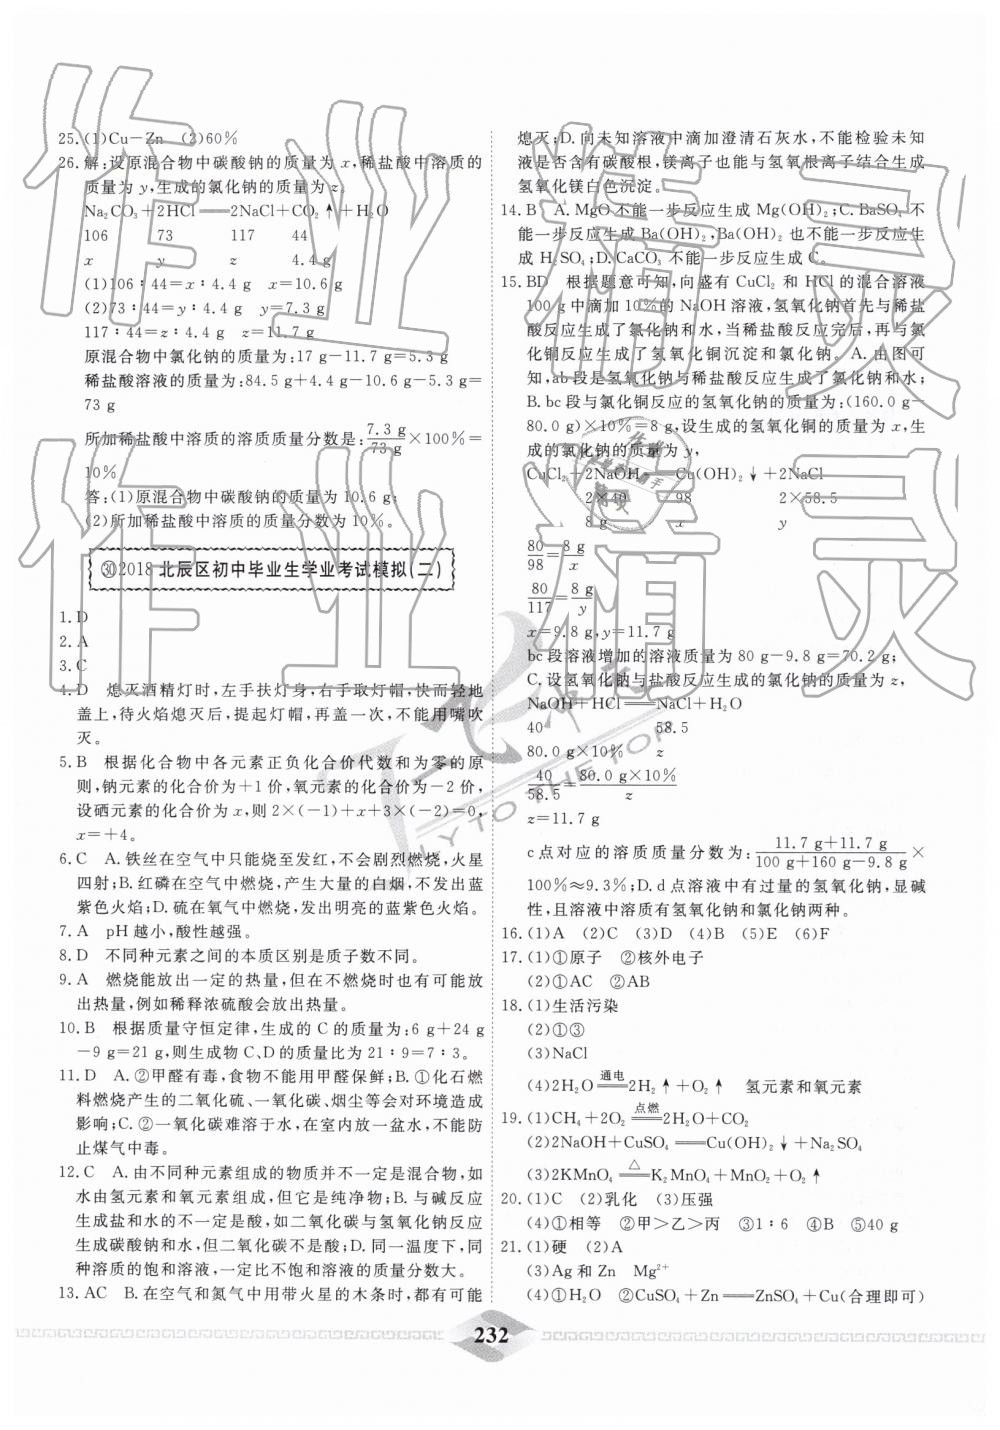 25. (1)Cu－Zn　(2)60%
26. 解:设原混合物中碳酸钠的质量为 x,稀盐酸中溶质的
质量为 y,生成的氯化钠的质量为 z。
Na₂CO₃＋2HCl═══2NaCl＋CO₂↑＋H₂O
106　73　117　44
x　y　z　4.4 g
(1)106∶44＝x∶4.4 g　x＝10.6 g
(2)73∶44＝y∶4.4 g　y＝7.3 g
117∶44＝z∶4.4 g　z＝11.7 g
原混合物中氯化钠的质量为:17 g－11.7 g＝5.3 g
稀盐酸溶液的质量为:84.5 g＋4.4 g－10.6 g－5.3 g＝
73 g
所加稀盐酸中溶质的溶质质量分数是:7.3 g/73 g×100%＝
10%
答:(1)原混合物中碳酸钠的质量为 10.6 g;
(2)所加稀盐酸中溶质的质量分数为 10%。
㉚2018 北辰区初中毕业生学业考试模拟(二)
1. D
2. A
3. C
4. D　熄灭酒精灯时,左手扶灯身,右手取灯帽,快而轻地
盖上,待火焰熄灭后,提起灯帽,再盖一次,不能用嘴吹
灭。
5. B　根据化合物中各元素正负化合价代数和为零的原
则,钠元素的化合价为＋1 价,氧元素的化合价为－2 价,
设硒元素的化合价为 x,则 2×(－1)＋x＋3×(－2)＝0,
x＝＋4。
6. C　A. 铁丝在空气中只能烧至发红,不会剧烈燃烧,火星
四射;B. 红磷在空气中燃烧,产生大量的白烟,不发出蓝
紫色火焰;D. 硫在氧气中燃烧,发出明亮的蓝紫色火焰。
7. A　pH 越小,酸性越强。
8. D　不同种元素之间的本质区别是质子数不同。
9. A　燃烧能放出一定的热量,但在不燃烧时也有可能
放出热量,例如稀释浓硫酸会放出热量。
10. B　根据质量守恒定律,生成的 C 的质量为:6 g＋24 g
－9 g＝21 g,则生成物 C、D 的质量比为 21∶9＝7∶3。
11. D　A. ②甲醛有毒,食物不能用甲醛保鲜;B. ①化石燃
料燃烧产生的二氧化硫、一氧化碳、烟尘等会对环境造成
影响;C. ②一氧化碳难溶于水,在室内放一盆水,不能防
止煤气中毒。
12. C　A. 由不同种元素组成的物质并不一定是混合物,如
水由氢元素和氧元素组成,但它是纯净物;B. 与碱反应
生成盐和水的不一定是酸,如二氧化碳与氢氧化钠反应
生成碳酸钠和水,但二氧化碳不是酸;D. 同一温度下,同
种溶质的饱和溶液,一定比不饱和溶液的质量分数大。
13. AC　B. 在空气和氮气中用带火星的木条时,都有可能
熄灭;D. 向未知溶液中滴加澄清石灰水,不能检验未知
液是否含有碳酸根,镁离子也能与氢氧根离子结合生成
氢氧化镁白色沉淀。
14. B　A. MgO 不能一步反应生成 Mg(OH)₂;C. BaSO₄ 不
能一步反应生成 Ba(OH)₂,Ba(OH)₂ 也不能一步反应生
成 H₂SO₄;D. CaCO₃ 不能一步反应生成 C。
15. BD　根据题意可知,向盛有 CuCl₂ 和 HCl 的混合溶液
100 g 中滴加 10%的 NaOH 溶液,氢氧化钠首先与稀盐
酸反应生成了氯化钠和水,当稀盐酸反应完后,再与氯
化铜反应生成了氢氧化铜沉淀和氯化钠。A. 由图可
知,ab 段是氢氧化钠与稀盐酸反应生成了氯化钠和水;
B. bc 段与氯化铜反应的氢氧化钠的质量为:(160.0 g－
80.0 g)×10%＝8 g,设生成的氢氧化铜的质量为 x,生
成的氯化钠的质量为 y,
CuCl₂＋2NaOH═══Cu(OH)₂↓＋2NaCl
2×40　98　2×58.5
8 g　x　y
80/98＝8 g/x
80/117＝8 g/y
x＝9.8 g,y＝11.7 g
bc 段溶液增加的溶液质量为 80 g－9.8 g＝70.2 g;
C. 设氢氧化钠与盐酸反应生成氯化钠的质量为 z,
NaOH＋HCl═══NaCl＋H₂O
40　58.5
80.0 g×10%　z
40/58.5＝80.0 g×10%/z
z＝11.7 g
c 点对应的溶质质量分数为:11.7 g＋11.7 g/100 g＋160 g－9.8 g×
100%≈9.3%;D. d 点溶液中有过量的氢氧化钠,显碱
性,且溶液中溶质有氢氧化钠和氯化钠两种。
16. (1)A　(2)C　(3)D　(4)B　(5)E　(6)F
17. (1)①原子　②核外电子
(2)①AC　②AB
18. (1)生活污染
(2)①③
(3)NaCl
(4)2H₂O 通电═══ 2H₂↑＋O₂↑　氢元素和氧元素
19. (1)CH₄＋2O₂ 点燃═══ 2H₂O＋CO₂
(2)2NaOH＋CuSO₄═══Cu(OH)₂↓＋Na₂SO₄
(3)2KMnO₄ △═══ K₂MnO₄＋MnO₂＋O₂↑
20. (1)C　(2)乳化　(3)压强
(4)①相等　②甲＞乙＞丙　③1∶6　④B　⑤40 g
21. (1)硬　(2)A
(3)Ag 和 Zn　Mg²⁺
(4)①H₂O　②CuSO₄＋Zn═══ZnSO₄＋Cu(合理即可)
232
作业精灵
作业精灵